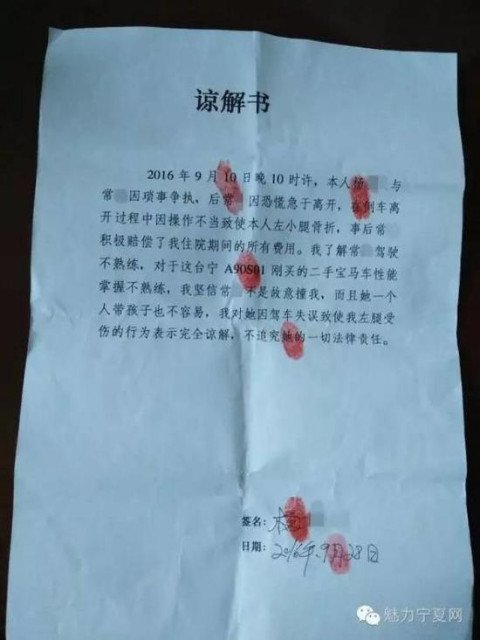 谅解书
2016年9月10日晚10时许，本人杨 与
常 因琐事争执，后常 因恐慌急于离开，在倒车离
开过程中因操作不当致使本人左小腿骨折，事后常
积极赔偿了我住院期间的所有费用。我了解常 驾驶
不熟练，对于这台宁A90S01刚买的二手宝马车性能
掌握不熟练，我坚信常 不是故意撞我，而且她一个
人带孩子也不容易，我对她因驾车失误致使我左腿受
伤的行为表示完全谅解，不追究她的一切法律责任。
签名：
日期：2016年9月28日
魅力宁夏网